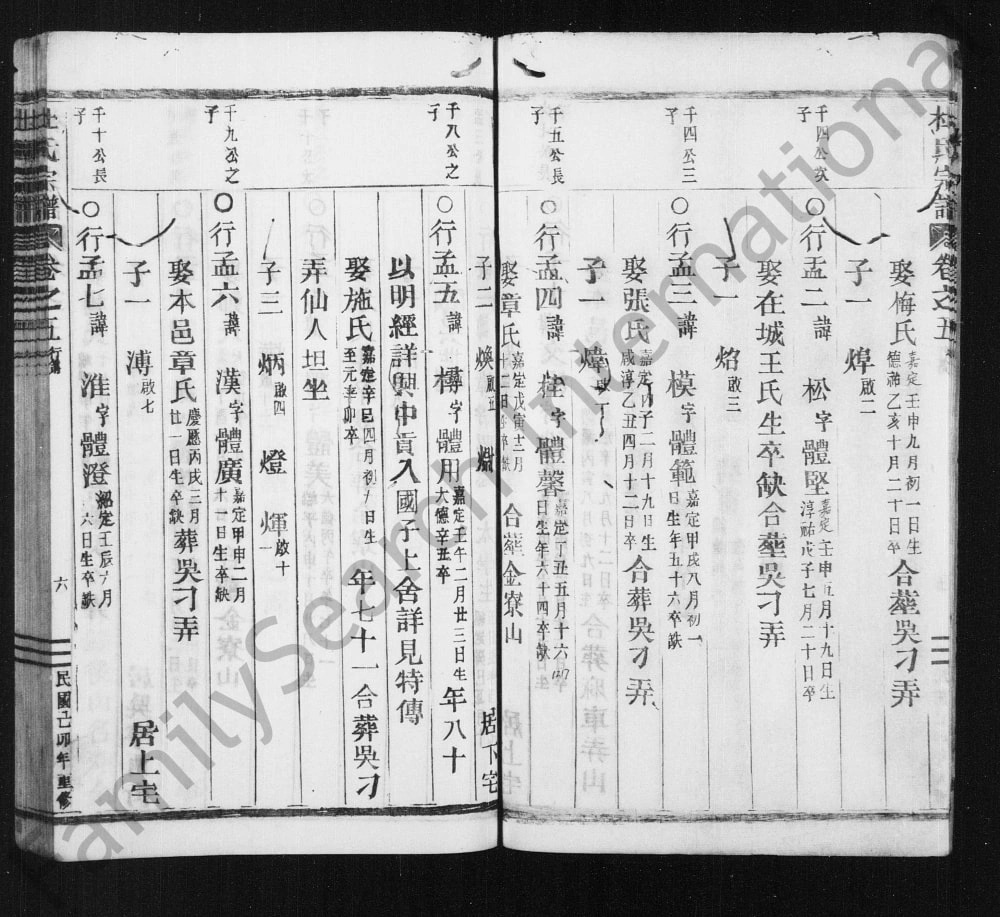 杜氏宗譜 卷之五
娶侮氏 嘉定壬申九月初一日生 德祐乙亥十月二十日卒 合葬吳刁弄
子一 煒 啟二
千四公次子
○行孟二 諱松 字體堅 嘉定壬申五月十九日生 淳祐戊子七月二十日卒
娶在城王氏生卒缺合葬吳刁弄
子一 焰 啟三
千四公三子
○行孟三 諱模 字體範 嘉定甲戌八月初一日生年五十六卒缺
娶張氏 嘉定丙子二月十九日生 咸淳乙丑四月十二日卒 合葬吳刁弄
子一
千五公長子
○行孟四 諱桂 字體馨 嘉定丁丑五月十六日生年六十四卒缺
娶章氏 嘉定戊寅十二月十二日生卒缺 合葬金寮山
子二 煥 啟五 居下宅
千八公之子
○行孟五 諱 字體用 嘉定壬午二月廿三日生 大德辛丑卒 年八十
以明經詳興中貢入國子上舍詳見特傳
娶施氏 嘉定辛巳四月初九日生 至元辛卯卒 年七十一合葬吳刁
弄仙人坦坐
子三 炳 啟四 燈 煇 啟十
千九公之子
○行孟六 諱漢 字體廣 嘉定甲申二月十一日生卒缺
娶本邑章氏 慶應丙戌三月廿一日生卒缺 葬吳刁弄
子一 溥 啟七 居上宅
千十公長子
○行孟七 諱淮 字體澄 紹定壬辰六月六日生卒缺
杜氏宗譜 卷之五
六
民國己卯年重修